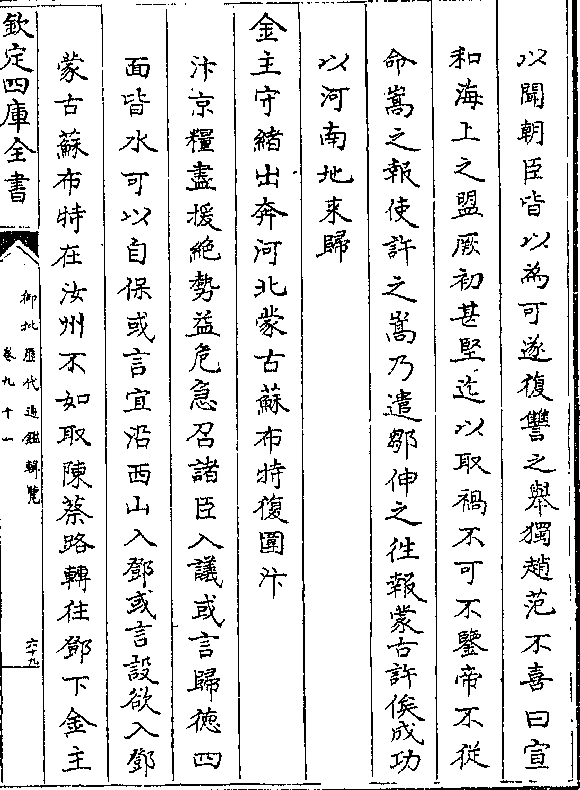 以聞朝臣皆以為可遂復讐之舉獨趙范不喜曰宣
和海上之盟厥初甚堅迄以取禍不可不鑒帝不從
命嵩之報使許之嵩乃遣鄒伸之往報蒙古許俟成功
以河南地来歸
金主守緒出奔河北蒙古蘇布特復圍汴
汴京糧盡援絶勢益危急召諸臣入議或言歸徳四
面皆水可以自保或言宜沿西山入鄧或言設欲入鄧
蒙古蘇布特在汝州不如取陳蔡路轉往鄧下金主
欽定四庫全書
御批歷代通鑑輯覽
卷九十一
六十九